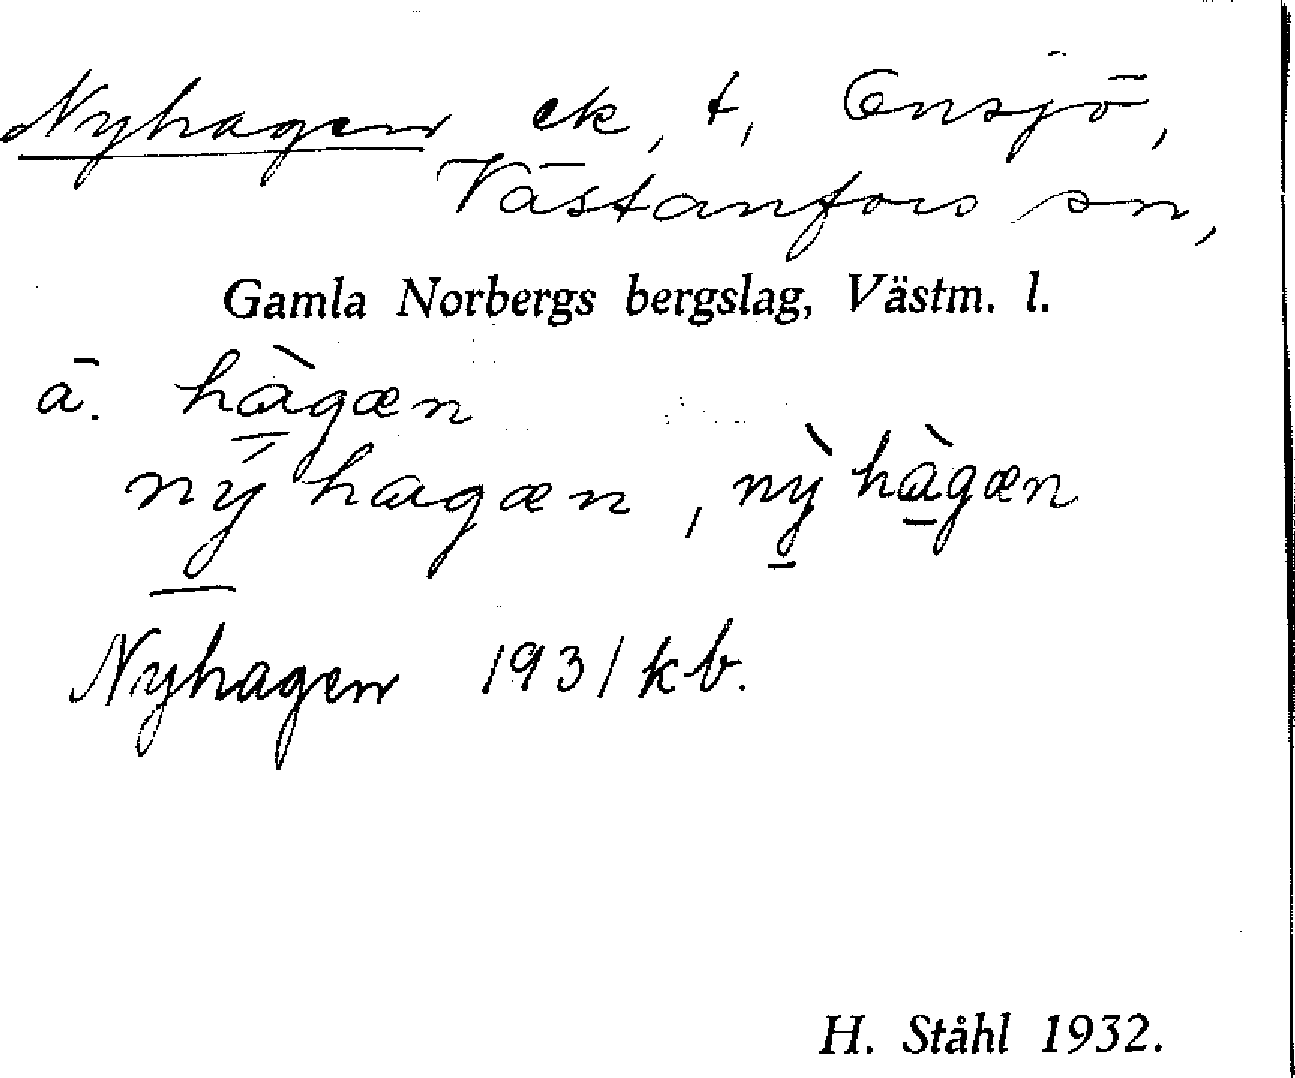 Nyhagen ek, t, Ensjö,
Västanfors sn,
Gamla Norbergs bergslag, Västm. l.
ä. hàgæn
nýhagæn, nỳhàgæn
Nyhagen 1931 kb.
H. Ståhl 1932.